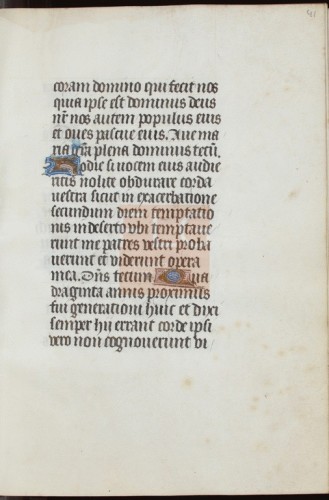 41
coram domino qui fecit nos
quia ipse est dominus deus
nr̄ nos autem populus eius
et oves pascue eius. Ave ma
ria grā plena dominus tecū.
Hodie si vocem eius audie
ritis nolite obdurare corda
vestra sicut in exacerbatione
secundum diem temptatio
nis in deserto vbi temptave
runt me patres vestri proba
verunt et viderunt opera
mea. Dn̄s tecum. Qua
draginta annis proximus
fui generationi huic et dixi
semper hii errant corde ipsi
vero non cognoverunt vi